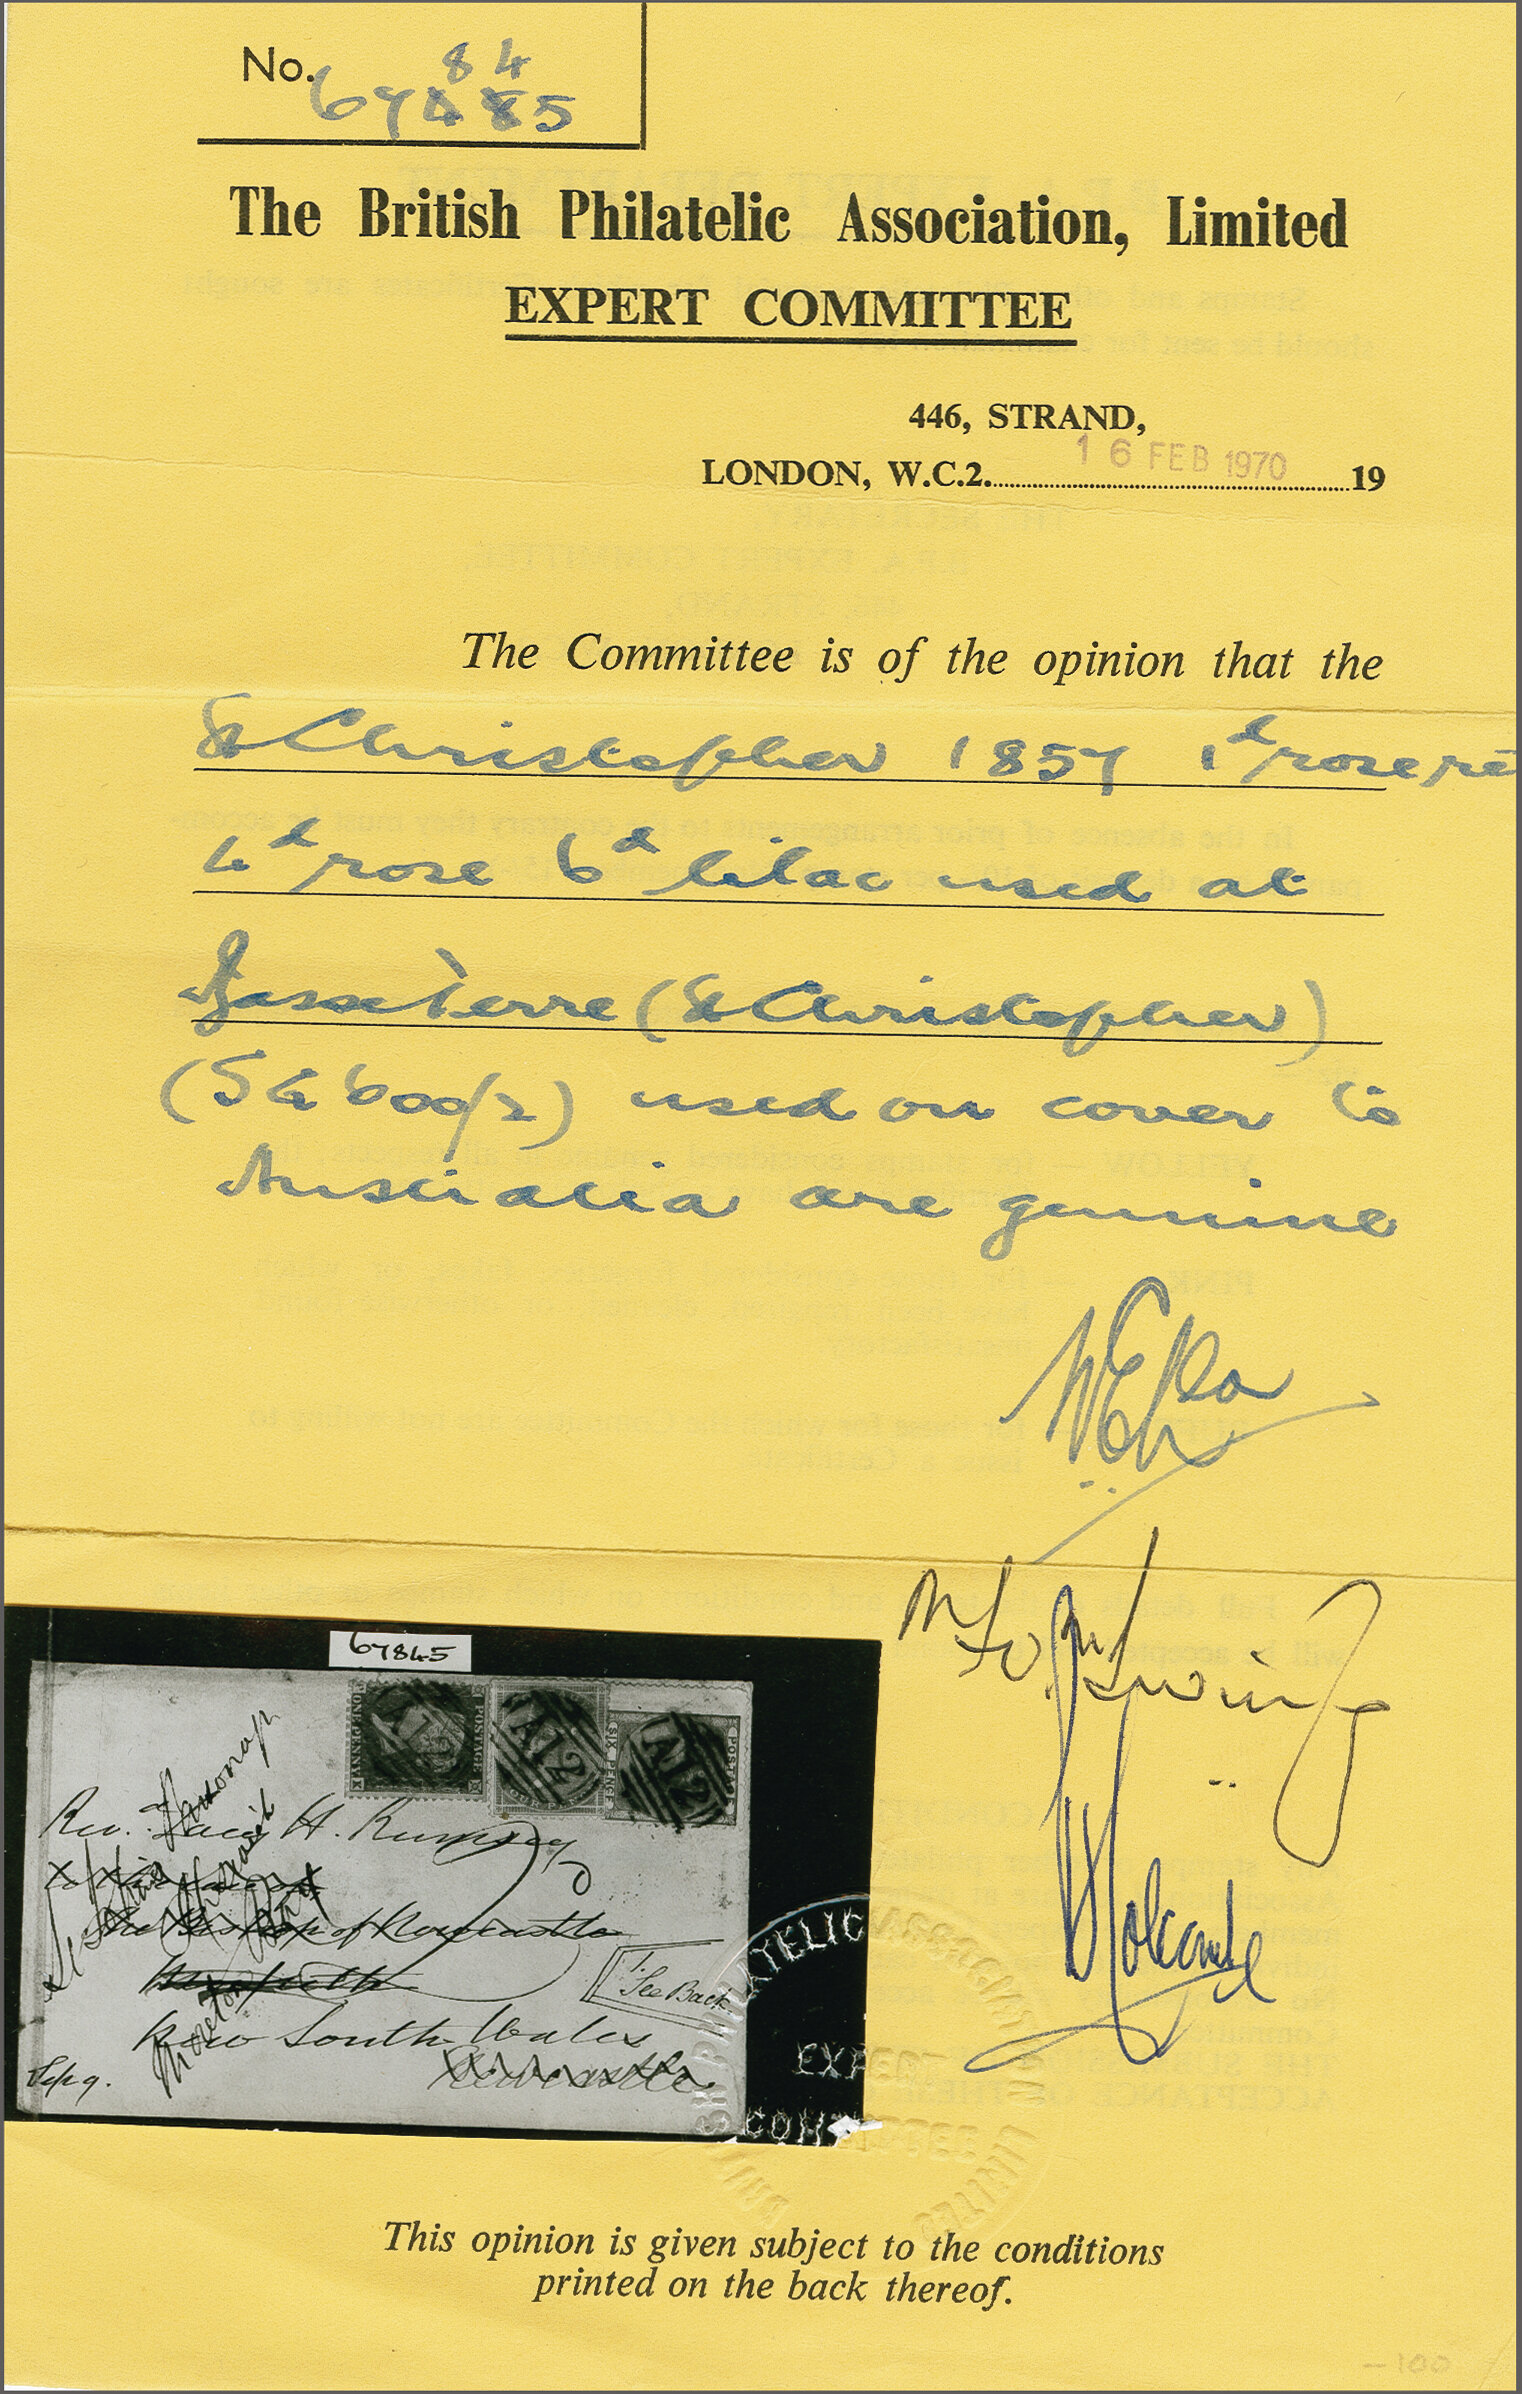 No. 67845
84
The British Philatelic Association, Limited
EXPERT COMMITTEE
446, STRAND,
LONDON, W.C.2. 16 FEB 1970 19
The Committee is of the opinion that the
St Christopher 1857 1d rose red
4d rose 6d lilac used at
Basse Terre (St Christopher)
(SG 600/2) used on cover to
Australia are genuine
67845
ONE PENNY POSTAGE
SIX PENCE
A12
A12
A12
Rev. H. Rumsey
The Bishop of Newcastle
Morpeth
See Back
New South Wales
Newcastle
Holcombe
BRITISH PHILATELIC ASSOCIATION LIMITED
EXPERT
COMMITTEE
This opinion is given subject to the conditions
printed on the back thereof.
-100